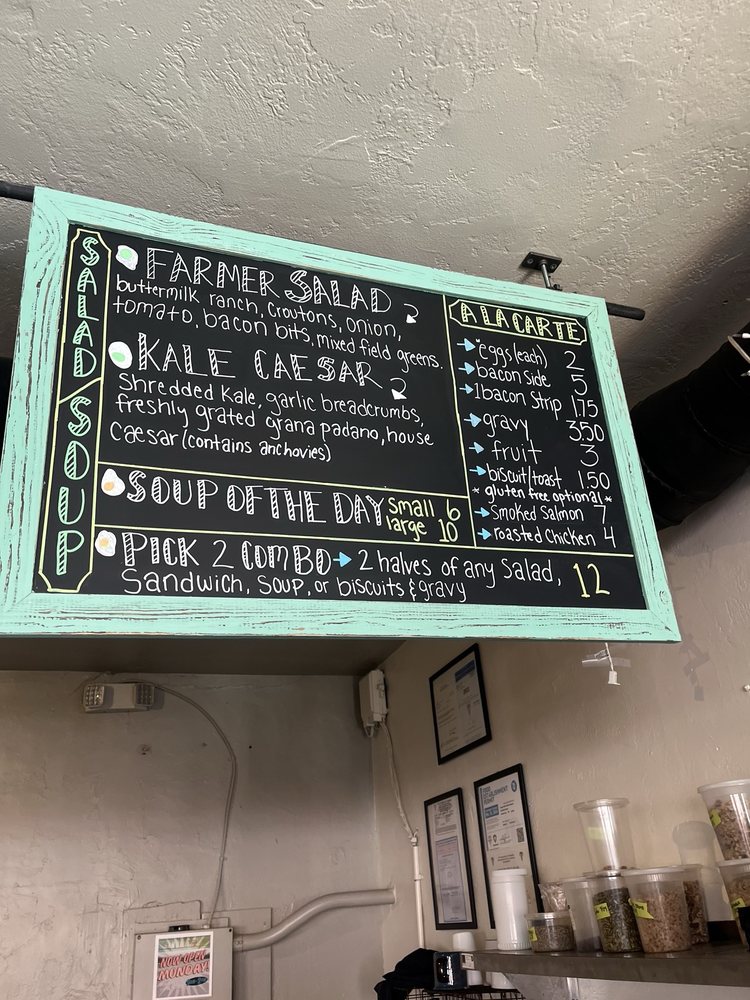 SALAD
SOUP
FARMER SALAD
buttermilk ranch, croutons, onion,
tomato, bacon bits, mixed field greens.
KALE CAESAR
Shredded Kale, garlic breadcrumbs,
freshly grated grana padano, house
Caesar (contains anchovies)
SOUP OF THE DAY small 6
large 10
PICK 2 COMBO 2 halves of any Salad, 12
Sandwich, Soup, or biscuits & gravy
A LA CARTE
eggs (each) 2
bacon side 5
1 bacon Strip 1.75
gravy 3.50
fruit 3
biscuit/toast 1.50
* gluten free optional *
Smoked Salmon 7
roasted Chicken 4
NOW OPEN
MONDAY!